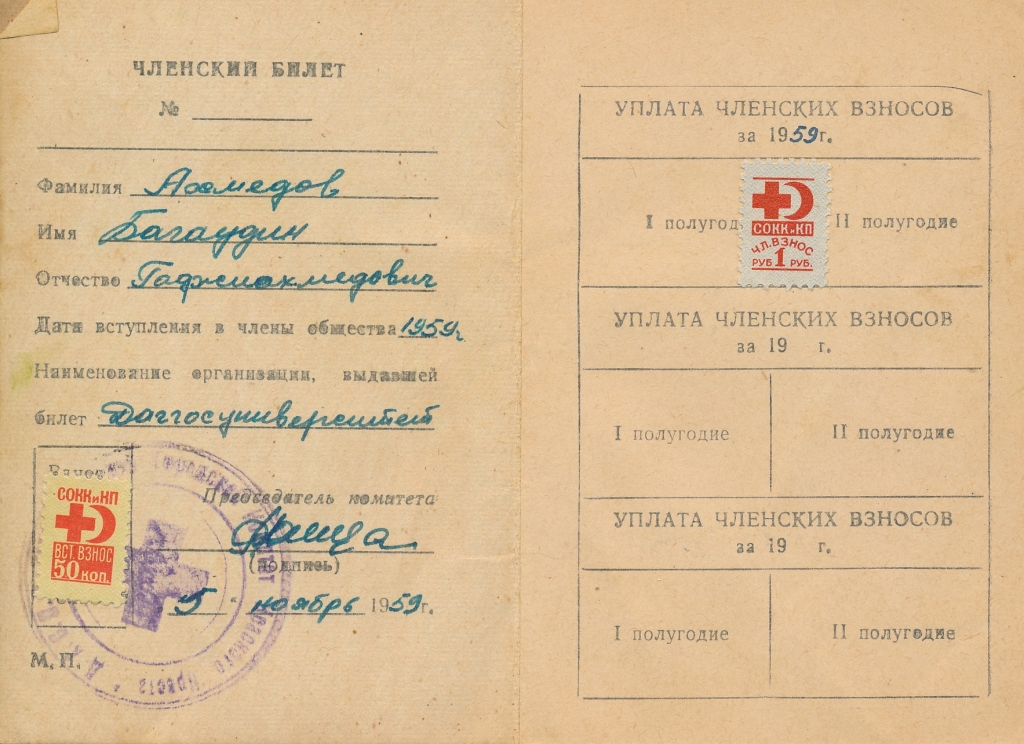 ЧЛЕНСКИЙ БИЛЕТ
№
Фамилия Ахмедов
Имя Багаудин
Отчество Гаджиахмедович
Дата вступления в члены общества 1959г
Наименование организации, выдавшей
билет Даггосуниверситет
СОКК и КП
ВСТ. ВЗНОС
50 КОП.
Председатель комитета
(подпись)
5 " ноябрь 1959г.
М. П.
Красного Креста
УПЛАТА ЧЛЕНСКИХ ВЗНОСОВ
за 1959г.
I полугод II полугодие
СОКК и КП
ЧЛ. ВЗНОС
РУБ 1 РУБ.
УПЛАТА ЧЛЕНСКИХ ВЗНОСОВ
за 19 г.
I полугодие II полугодие
УПЛАТА ЧЛЕНСКИХ ВЗНОСОВ
за 19 г.
I полугодие II полугодие